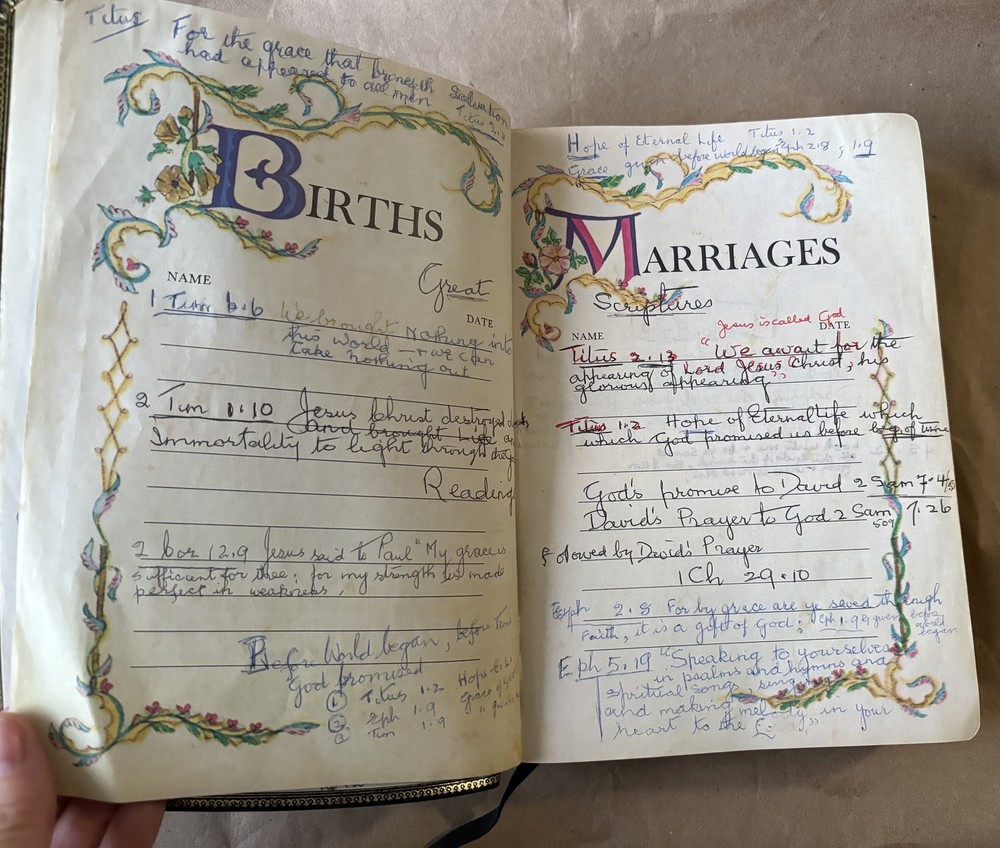 Titus
For the grace that bringeth Salvation
had appeared to all men
Titus
BIRTHS
Great
NAME
DATE
1 Tim 6.6 We brought Nothing into
this World + we can
take nothing out
2 Tim 1.10 Jesus Christ destroyed death
and brought Life
Immortality to light through
Reading
2 Cor 12.9 Jesus said to Paul "My grace is
sufficient for thee; for my strength is made
perfect in weakness.
Before World began, before Time
God promised
① Titus 1.2 Hope
② Eph 1.9 Grace
③ Tim 1.9
Hope of Eternal Life Titus 1.2
Grace given before world began Eph 2.8; 1.9
MARRIAGES
Scriptures
Jesus is called God
NAME
DATE
Titus 2.13 "We await for the
appearing of Lord Jesus Christ, his
glorious appearing"
Titus 1.2 Hope of Eternal Life which
which God promised us before beg. of time
God's promise to David 2 Sam 7.4
David's Prayer to God 2 Sam 7.26
509
Followed by David's Prayer
1 Ch 29.10
Eph 2.8 For by grace are ye saved through
Faith, it is a gift of God; Eph 1.9 given before
began
Eph 5.19 "Speaking to yourselves
in psalms and hymns and
spiritual songs, singing
and making melody in your
heart to the £"